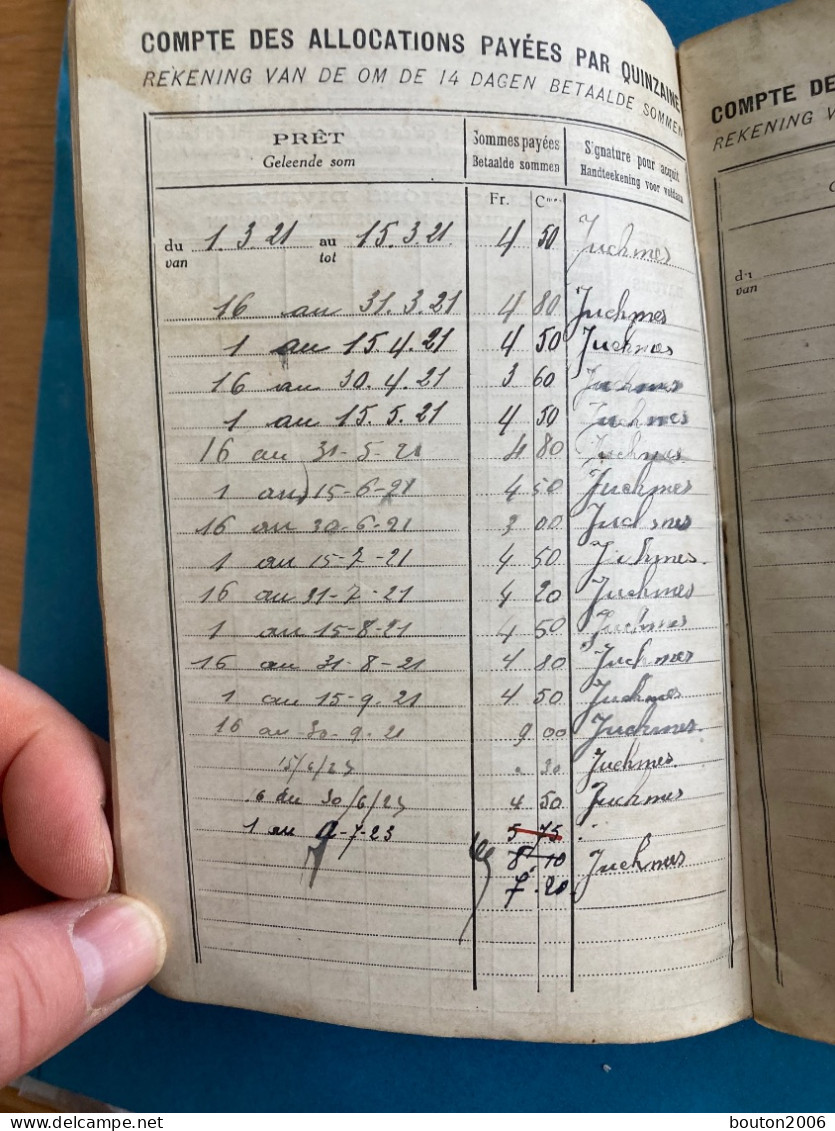 COMPTE DES ALLOCATIONS PAYÉES PAR QUINZAINE
REKENING VAN DE OM DE 14 DAGEN BETAALDE SOMMEN
PRÊT Sommes payées Signature pour acquit
Geleende som Betaalde sommen Handteekening voor voldaan
Fr. C
du 1.3.21 au 15.3.21 4 50 Juchmes
van tot
16 au 31.3.21 4 80 Juchmes
1 au 15.4.21 4 50 Juchmes
16 au 30.4.21 3 60 Juchmes
1 au 15.5.21 4 50 Juchmes
16 au 31-5-21 4 80 Juchmes
1 au 15-6-21 4 50 Juchmes
16 au 30-6-21 3 00 Juchmes
1 au 15-7-21 4 50 Juchmes.
16 au 31-7-21 4 20 Juchmes
1 au 15-8-21 4 50 Juchmes
16 au 31-8-21 4 80 Juchmes
1 au 15-9-21 4 50 Juchmes
16 au 30-9-21 00 Juchmes
15/6/23 30 Juchmes.
16 au 30/6/23 4 50 Juchmes
1 au -7-23 5 75
8.10 Juchmes
7.20
COMPTE DE
REKENING V
van
bouton2006